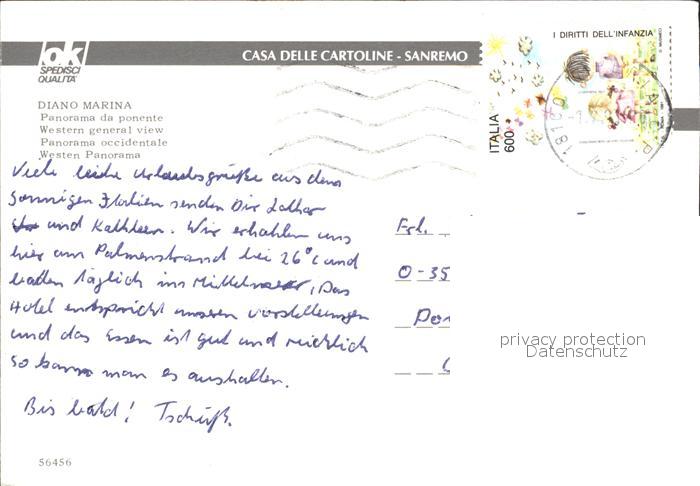 ok
SPEDISCI
QUALITA'
CASA DELLE CARTOLINE - SANREMO
I DIRITTI DELL'INFANZIA
ITALIA
600
DIANO MARINA
Panorama da ponente
Western general view
Panorama occidentale
Westen Panorama
Viele liebe Urlaubsgrüße aus dem
sonnigen Italien senden Dir Lothar
und Kathleen. Wir erhohlen uns
hier am Palmenstrand bei 26°C und
baden täglich im Mittelmeer. Das
Hotel entspricht unseren Vorstellungen
und das Essen ist gut und reichlich
so kann man es aushalten.
Bis bald! Tschüß.
Frl.
O-35
privacy protection
Datenschutz
56456